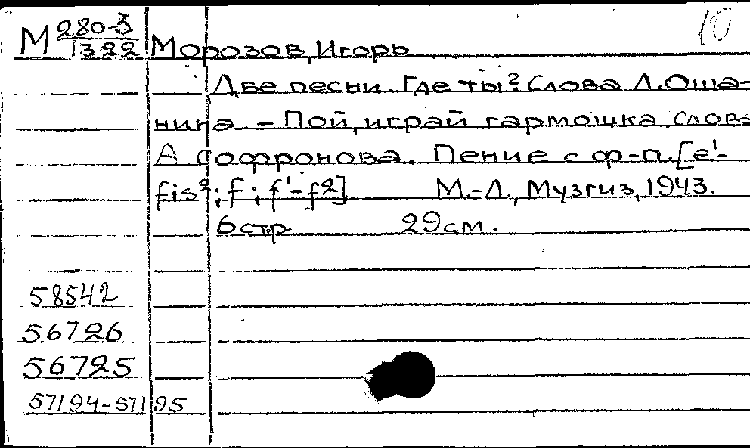 10
М 280-3/1322 Морозов, Игорь
Две песни. Где ты? Слова Л. Оша-
нина – Пой, играй гармошка слова
А Софронова. Пение с ф-п. [e¹-
fis²; f; f¹-f²] М.-Л., Музгиз, 1943.
6стр 29см.
58542
56726
56725
57194-57195